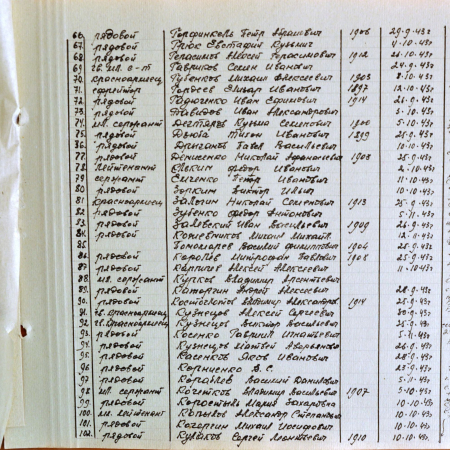 66. рядовой Горфинкель Петр Абрамович 1906 29.9.43г
67. рядовой Грюк Евстафий Кузьмич 4.10.43г
68. рядовой Герасимов Алексей Герасимович 1912 26.9.43г
69. Гавриков Семен Иванович 24.9.43г
70. красноармеец Губенков Михаил Алексеевич 1903 8.10.43г
71. ефрейтор Гордеев Эльвар Иванович 1897 12.10.43г
72. рядовой Гадюченко Иван Ефимович 1914 26.9.43г
73. рядовой Давидов Иван Александрович 5.11.43г
74. мл. сержант Дегтярев Кузьма Семенович 1900 5.10.43г
75. рядовой Дзюба Тихон Иванович 1899 28.9.43г
76. рядовой Дригалов Павел Васильевич 10.10.43г
77. рядовой Денисенко Николай Афанасьевич 1908 25.9.43г
78. лейтенант Елехин Федор Иванович 2.10.43г
79. сержант Еличенко Петр Иванович 11.10.43г
80. рядовой Зоркин Виктор Ильич 10.10.43г
81. красноармеец Залогин Николай Семенович 1913 25.9.43г
82. рядовой Зубенко Федор Антонович 5.11.43г
83. рядовой Залевский Иван Васильевич 1909 26.9.43г
84. рядовой Кожевников Михаил Михайл. 12.11.43г
85. Пономарев Василий Филиппович 1904 25.9.43г
86. рядовой Королев Митрофан Павлович 1908 25.9.43г
87. рядовой Карпичев Алексей Алексеевич 11.10.43г
88. мл. сержант Купков Владимир Арсентьевич
89. рядовой Катаргин Андрей Алексеев 28.9.43г
90. рядовой Костюченков Владимир Александров 1914 28.9.43г
91. гв. красноармеец Кузнецов Алексей Сергеевич 30.9.43г
92. гв. красноармеец Кузнецов Виктор Васильевич 25.9.43г
93. рядовой Косенко Гавриил Игнатьевич 5.11.43г
94. рядовой Кузнецов Матвей 26.9.43г
95. рядовой Касенков Яков Иванович 28.9.43г
96. рядовой Корниенко В.С. 23.9.43г
97. рядовой Кораблев Василий Данилович 5.11.43г
98. мл. сержант Кочетков Владимир Васильевич 1907 3.10.43г
99. рядовой Коростин Мария Захаровна 10.10.43г
100. мл. лейтенант Копылов Александр Степанович 10.10.43г
101. рядовой Кочергин Михаил Иосифович 10.10.43г
102. рядовой Кувыков Сергей Леонтьевич 1910 10.10.43г